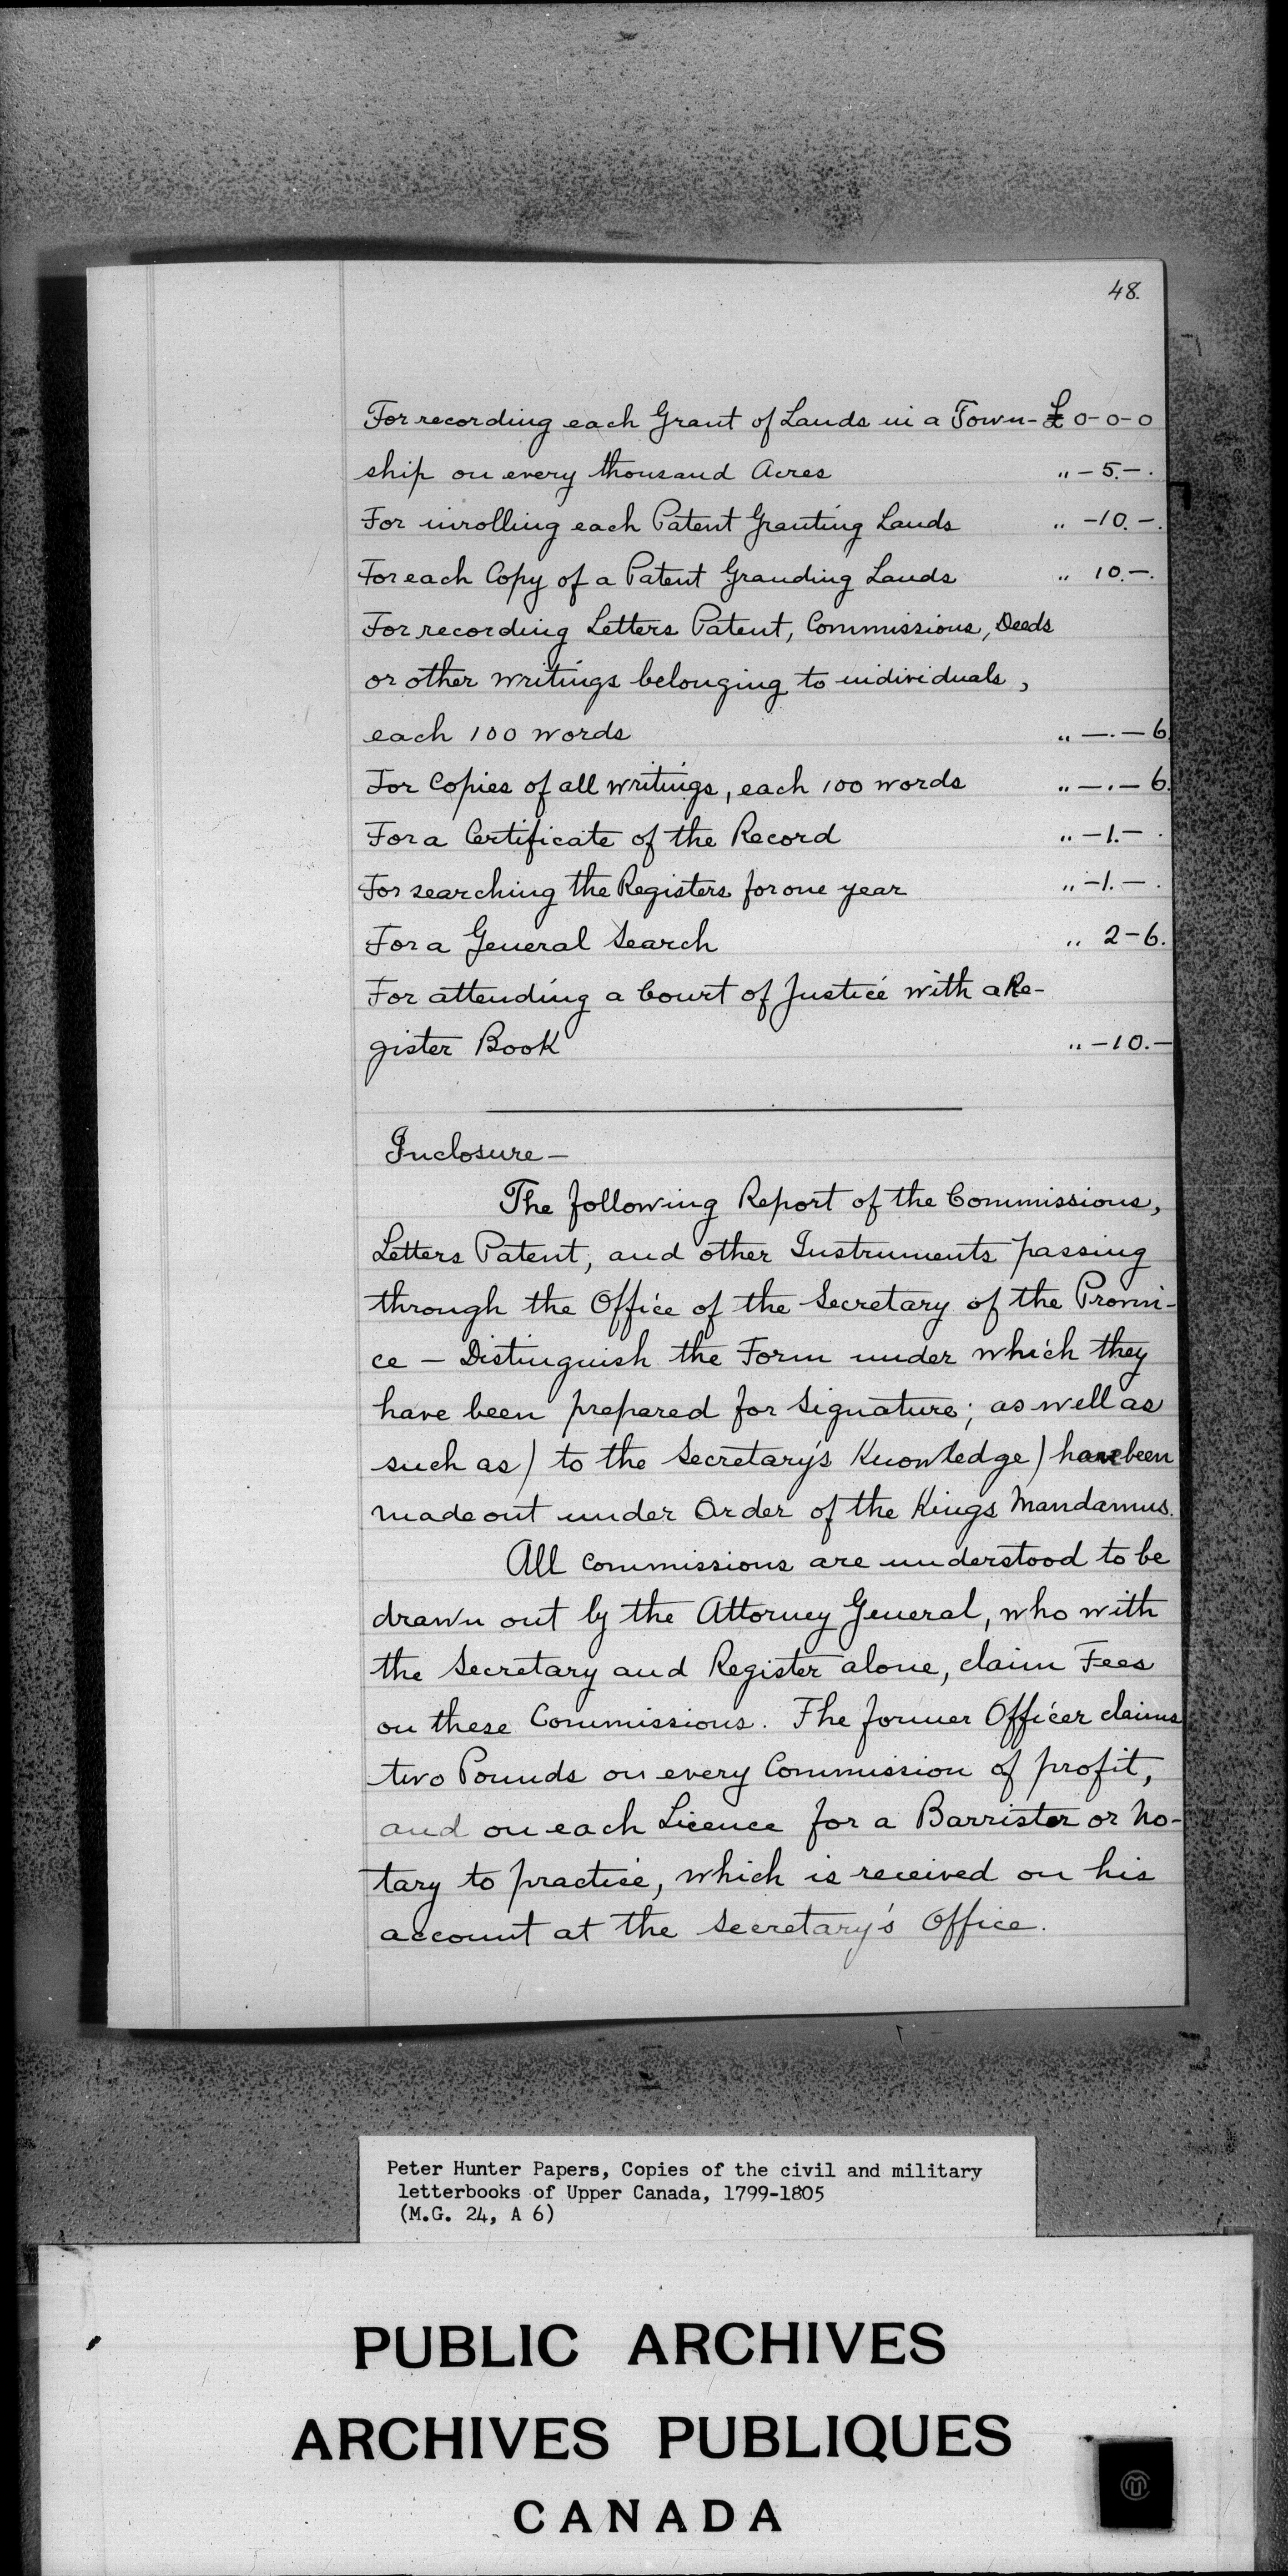 48.
For recording each Grant of Lands in a Town- £ 0-0-0
ship on every thousand Acres " - 5. - .
For inrolling each Patent Granting Lands " - 10. - .
For each Copy of a Patent Granding Lands " 10. - .
For recording Letters Patent, Commissions, Deeds
or other writings belonging to individuals,
each 100 words " - . - 6.
For Copies of all writings, each 100 words " - . - 6.
For a Certificate of the Record " - 1. - .
For searching the Registers for one year " - 1. - .
For a General Search " 2 - 6.
For attending a Court of Justice with a Re-
gister Book " - 10. -
Inclosure -
The following Report of the Commissions,
Letters Patent, and other Instruments passing
through the Office of the Secretary of the Provin-
ce - Distinguish the Form under which they
have been prepared for Signature; as well as
such as) to the Secretary's Knowledge) have been
made out under Order of the Kings Mandamus.
All Commissions are understood to be
drawn out by the Attorney General, who with
the Secretary and Register alone, claim Fees
on these Commissions. The former Officer claims
two Pounds on every Commission of profit,
and on each Licence for a Barrister or No-
tary to practice, which is received on his
account at the Secretary's Office.
Peter Hunter Papers, Copies of the civil and military
letterbooks of Upper Canada, 1799-1805
(M.G. 24, A 6)
PUBLIC ARCHIVES
ARCHIVES PUBLIQUES
CANADA